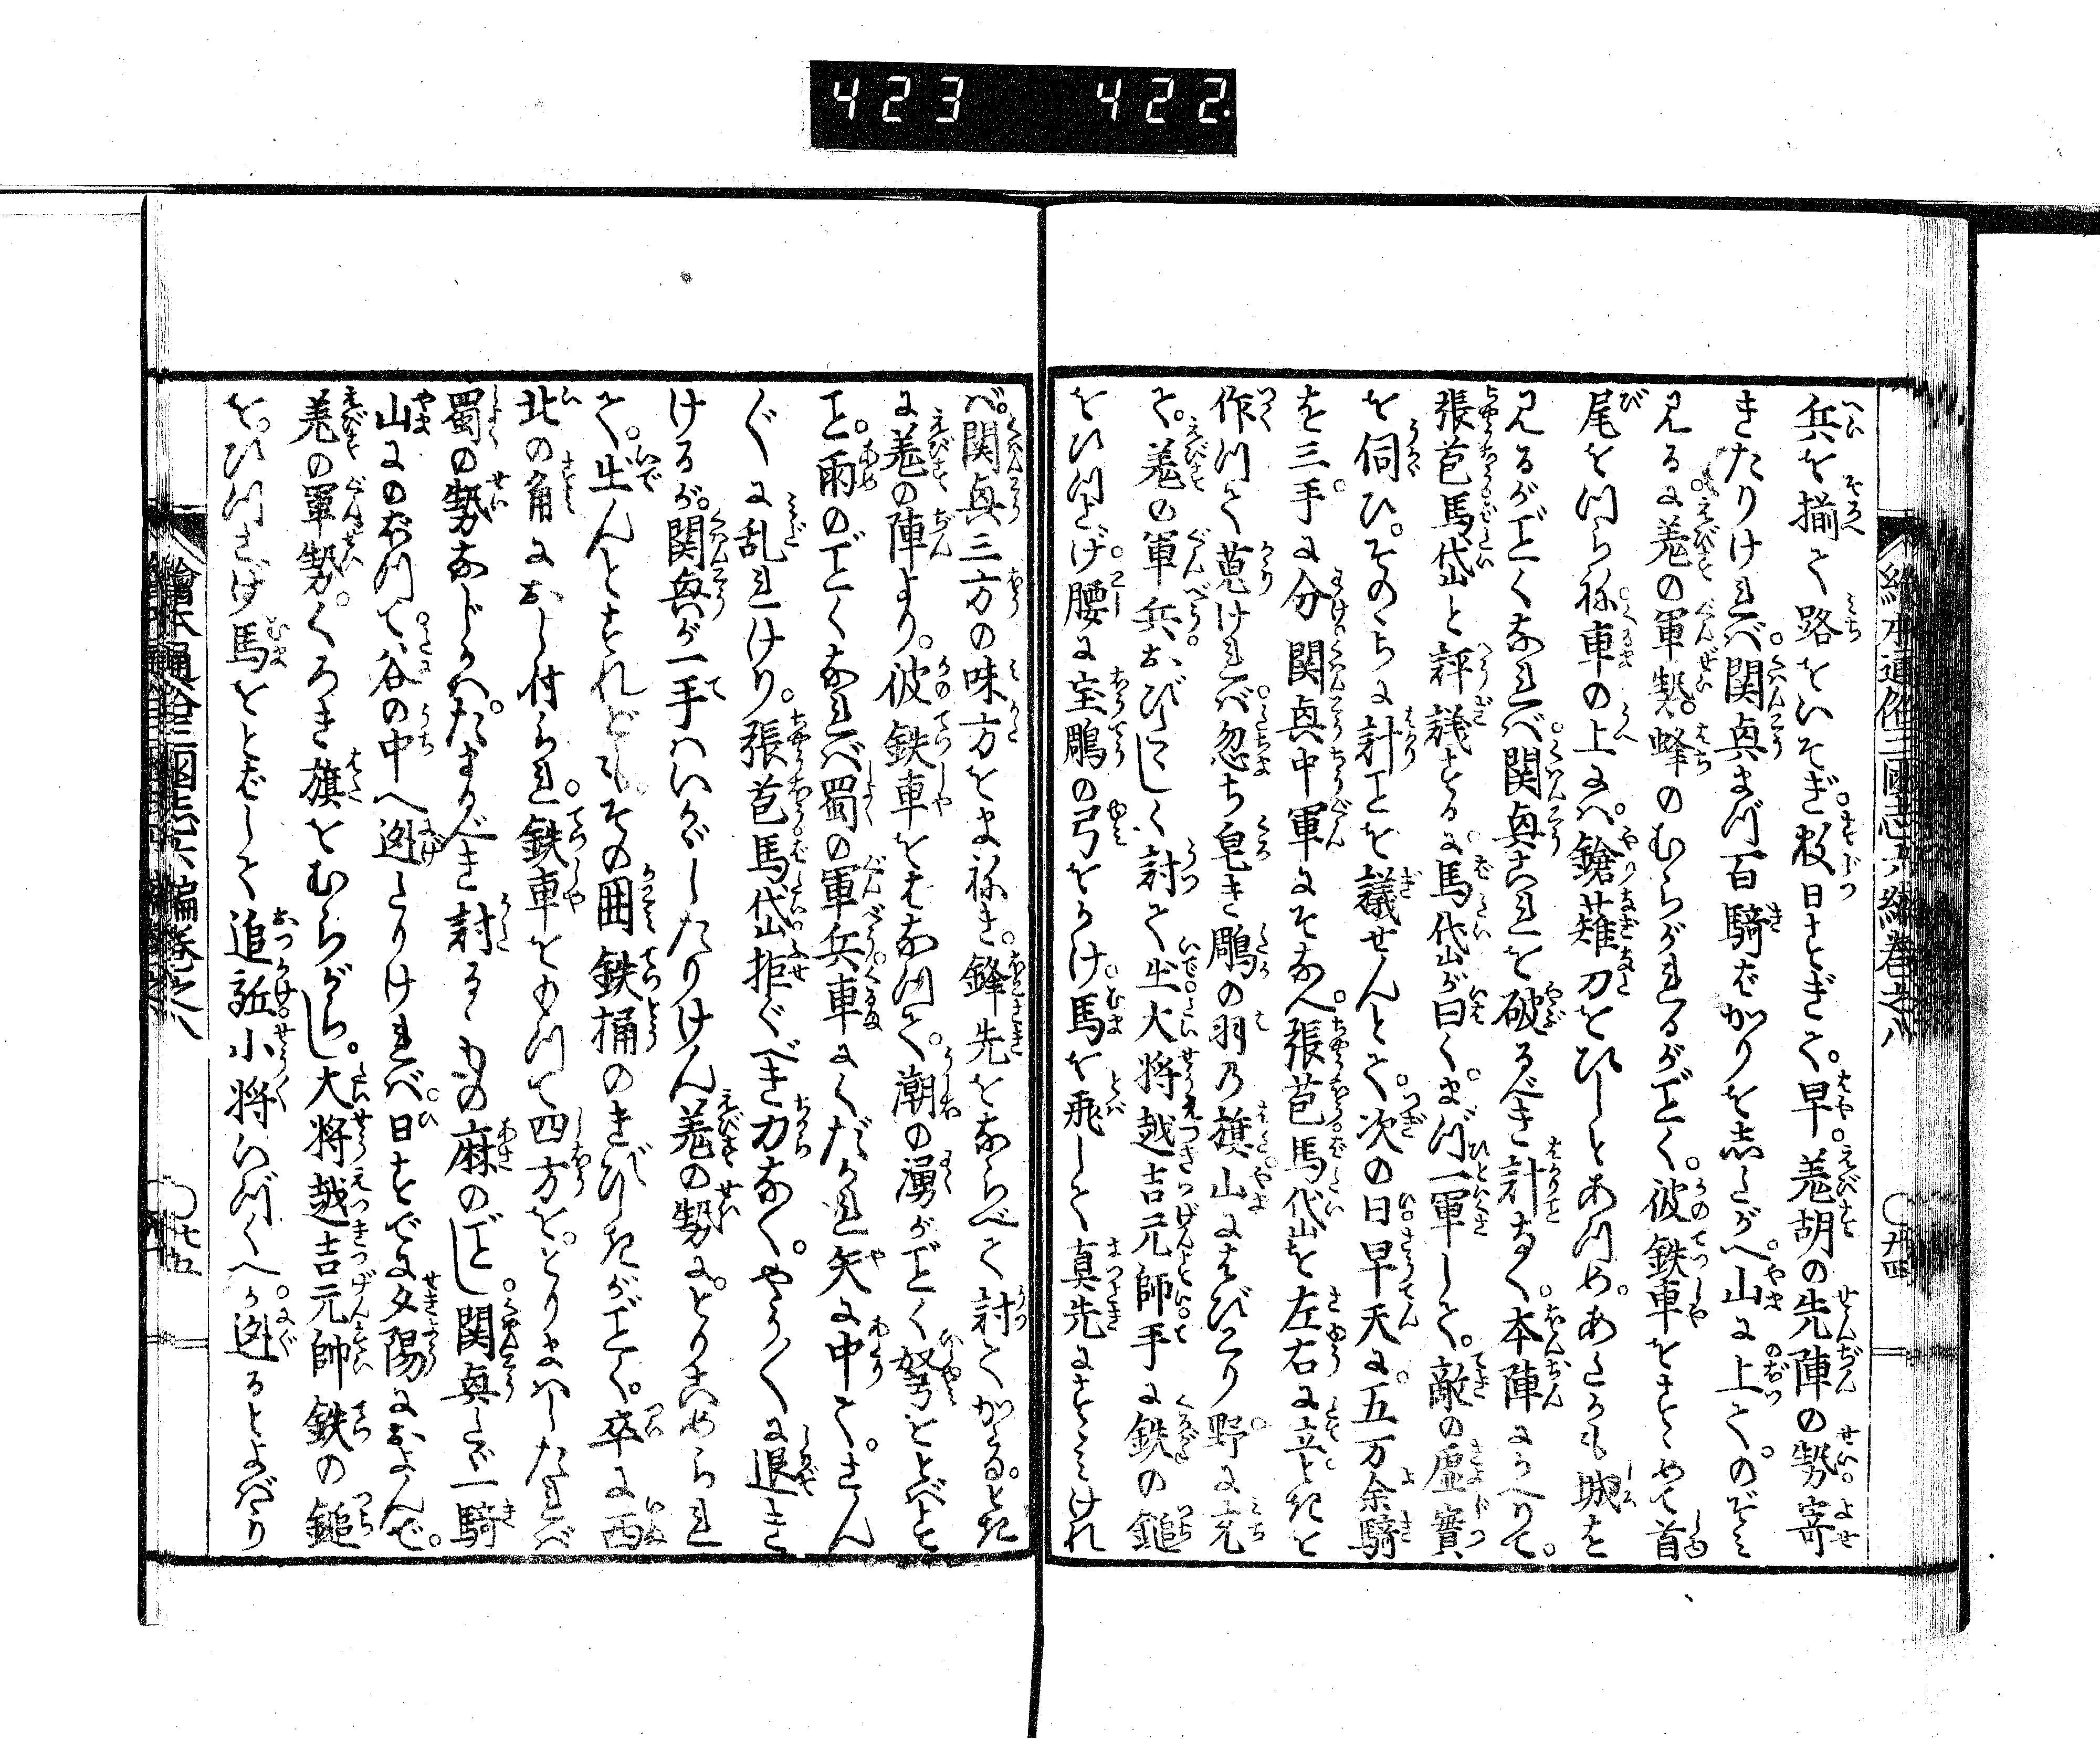 423 422
絵本通俗三国志六編巻之八 ○廿四
兵を揃て路をいそぎ。数日をすぎて。早。羗胡の先陣の勢寄
きたりければ。関真まづ百騎ばかりを志たがへ。山に上て。のぞみ
見るに。羗の軍勢。蜂のむらがれるがごとく。彼鉄車をすゝめて首
尾をつらね。車の上には。鎗薙刀をひしとあつめ。あたかも城を
見るがごとくなれば。関真これを破るべき計なく。本陣にかへりて。
張苞馬岱と評議するに。馬岱が曰く。まづ一軍して。敵の虚實
を伺ひ。そのゝちに計ことを議せんとて。次の日早天に。五万余騎
を三手に分。関真中軍にそなへ。張苞馬岱を左右に立ときを
作つて蒐ければ。忽ち皂き雕の羽乃旗山にはびこり。野に充
て。羗の軍兵おびたゝしく討て出大将越吉元帥手に鉄の鎚
をひつさげ。腰に宝雕の弓をかけ。馬を飛して真先にすゝみけれ
ば。関真三方の味方をまねき。鋒先をならべて討てかゝる。とき
に羗の陣より。彼鉄車をはなつて。潮の湧がごとく弩をとばすこ
と。雨のごとくなれば蜀の軍兵車にくだかれ矢に中て。さん
〴〵に乱れけり。張苞馬岱拒ぐべき力なく。やう〳〵に退き
けるが。関真が一手はいかゞしたりけん羗の勢に。とりこめられ
て。出んとすれども。その囲鉄桶のきびしきがごとく。卒に西
北の角におし付られ。鉄車をもつて四方を。とりまはしたれば
蜀の勢あしがへ。たまるべき討るゝもの麻のごとし。関真たゞ一騎
山にのぼつて。谷の中へ迯とりければ。日すでに夕陽におよんで。
羗の軍勢。くろき旗をむらがらし。大将越吉元帥鉄の鎚
を。ひつさげ馬をとばして追近小将いづくへか。迯るとよばゝり
絵本通俗三国志六編巻之八 ○廿五